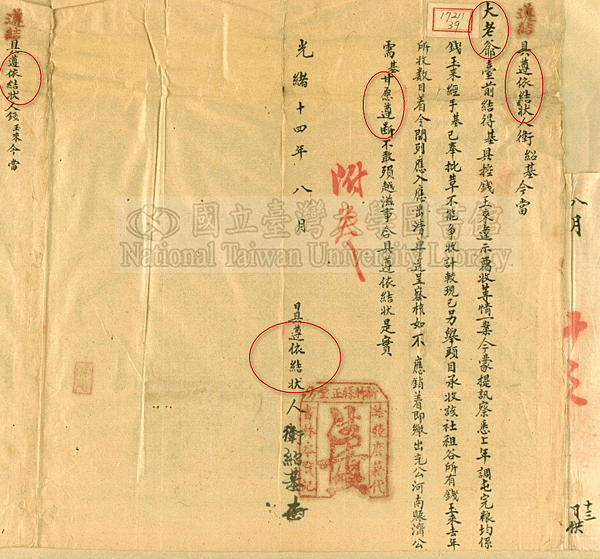 遵結
具遵依結狀人衛紹基今當
大老爺臺前結得基具控錢玉來違示霸收等情一案今蒙提訊察悉上年調屯完粮均係
錢玉來經手基已奉批革不能爭收計較現已另舉頭目承收該社租谷所有錢玉來去年
所收數目着令開列應入應出清单送呈察核如不應銷着即繳出充公河南賬濟公
需基甘愿遵断不敢頊越滋事合具遵依結狀是實
光緒十四年八月 日具遵依結狀人衛紹基
附卷
遵結
具遵依結狀人錢玉來今當
17211
39
八月
十三
國立臺灣大學圖書館
National Taiwan University Library